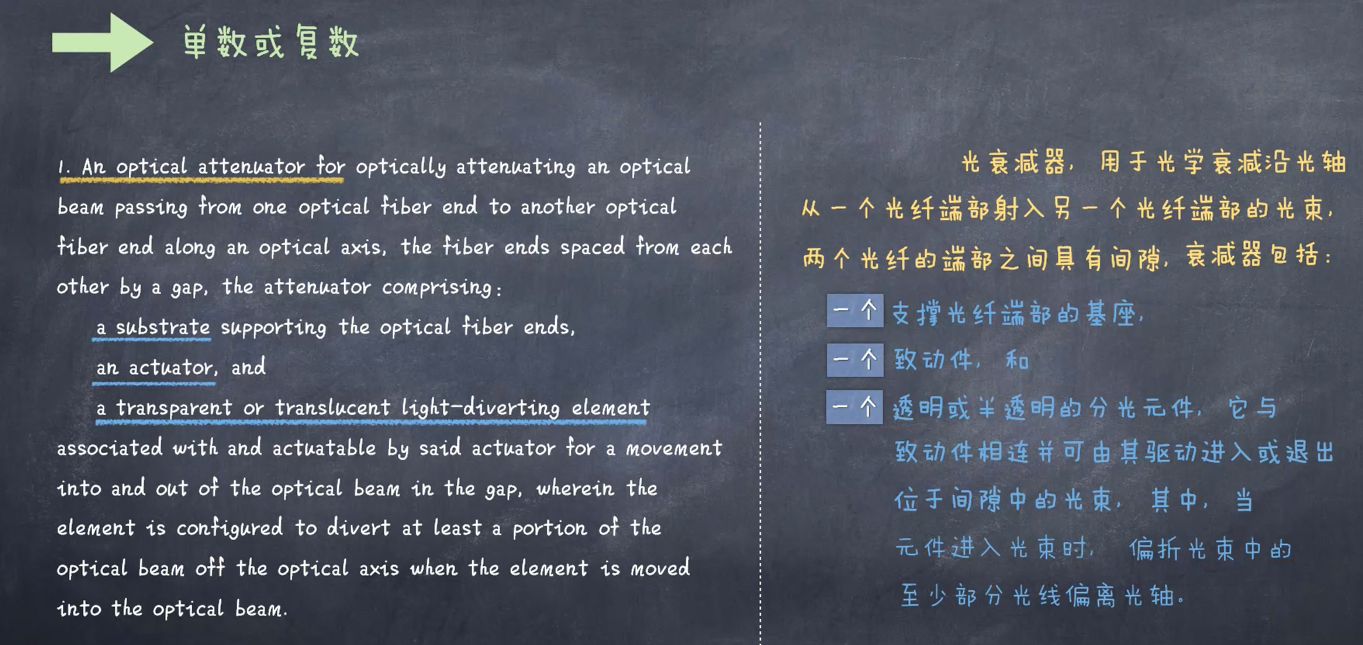 单数或复数
1. An optical attenuator for optically attenuating an optical
beam passing from one optical fiber end to another optical
fiber end along an optical axis, the fiber ends spaced from each
other by a gap, the attenuator comprising:
a substrate supporting the optical fiber ends,
an actuator, and
a transparent or translucent light-diverting element
associated with and actuatable by said actuator for a movement
into and out of the optical beam in the gap, wherein the
element is configured to divert at least a portion of the
optical beam off the optical axis when the element is moved
into the optical beam.
光衰减器, 用于光学衰减沿光轴
从一个光纤端部射入另一个光纤端部的光束,
两个光纤的端部之间具有间隙, 衰减器包括:
一个 支撑光纤端部的基座,
一个 致动件, 和
一个 透明或半透明的分光元件, 它与
致动件相连并可由其驱动进入或退出
位于间隙中的光束, 其中, 当
元件进入光束时, 偏折光束中的
至少部分光线偏离光轴。